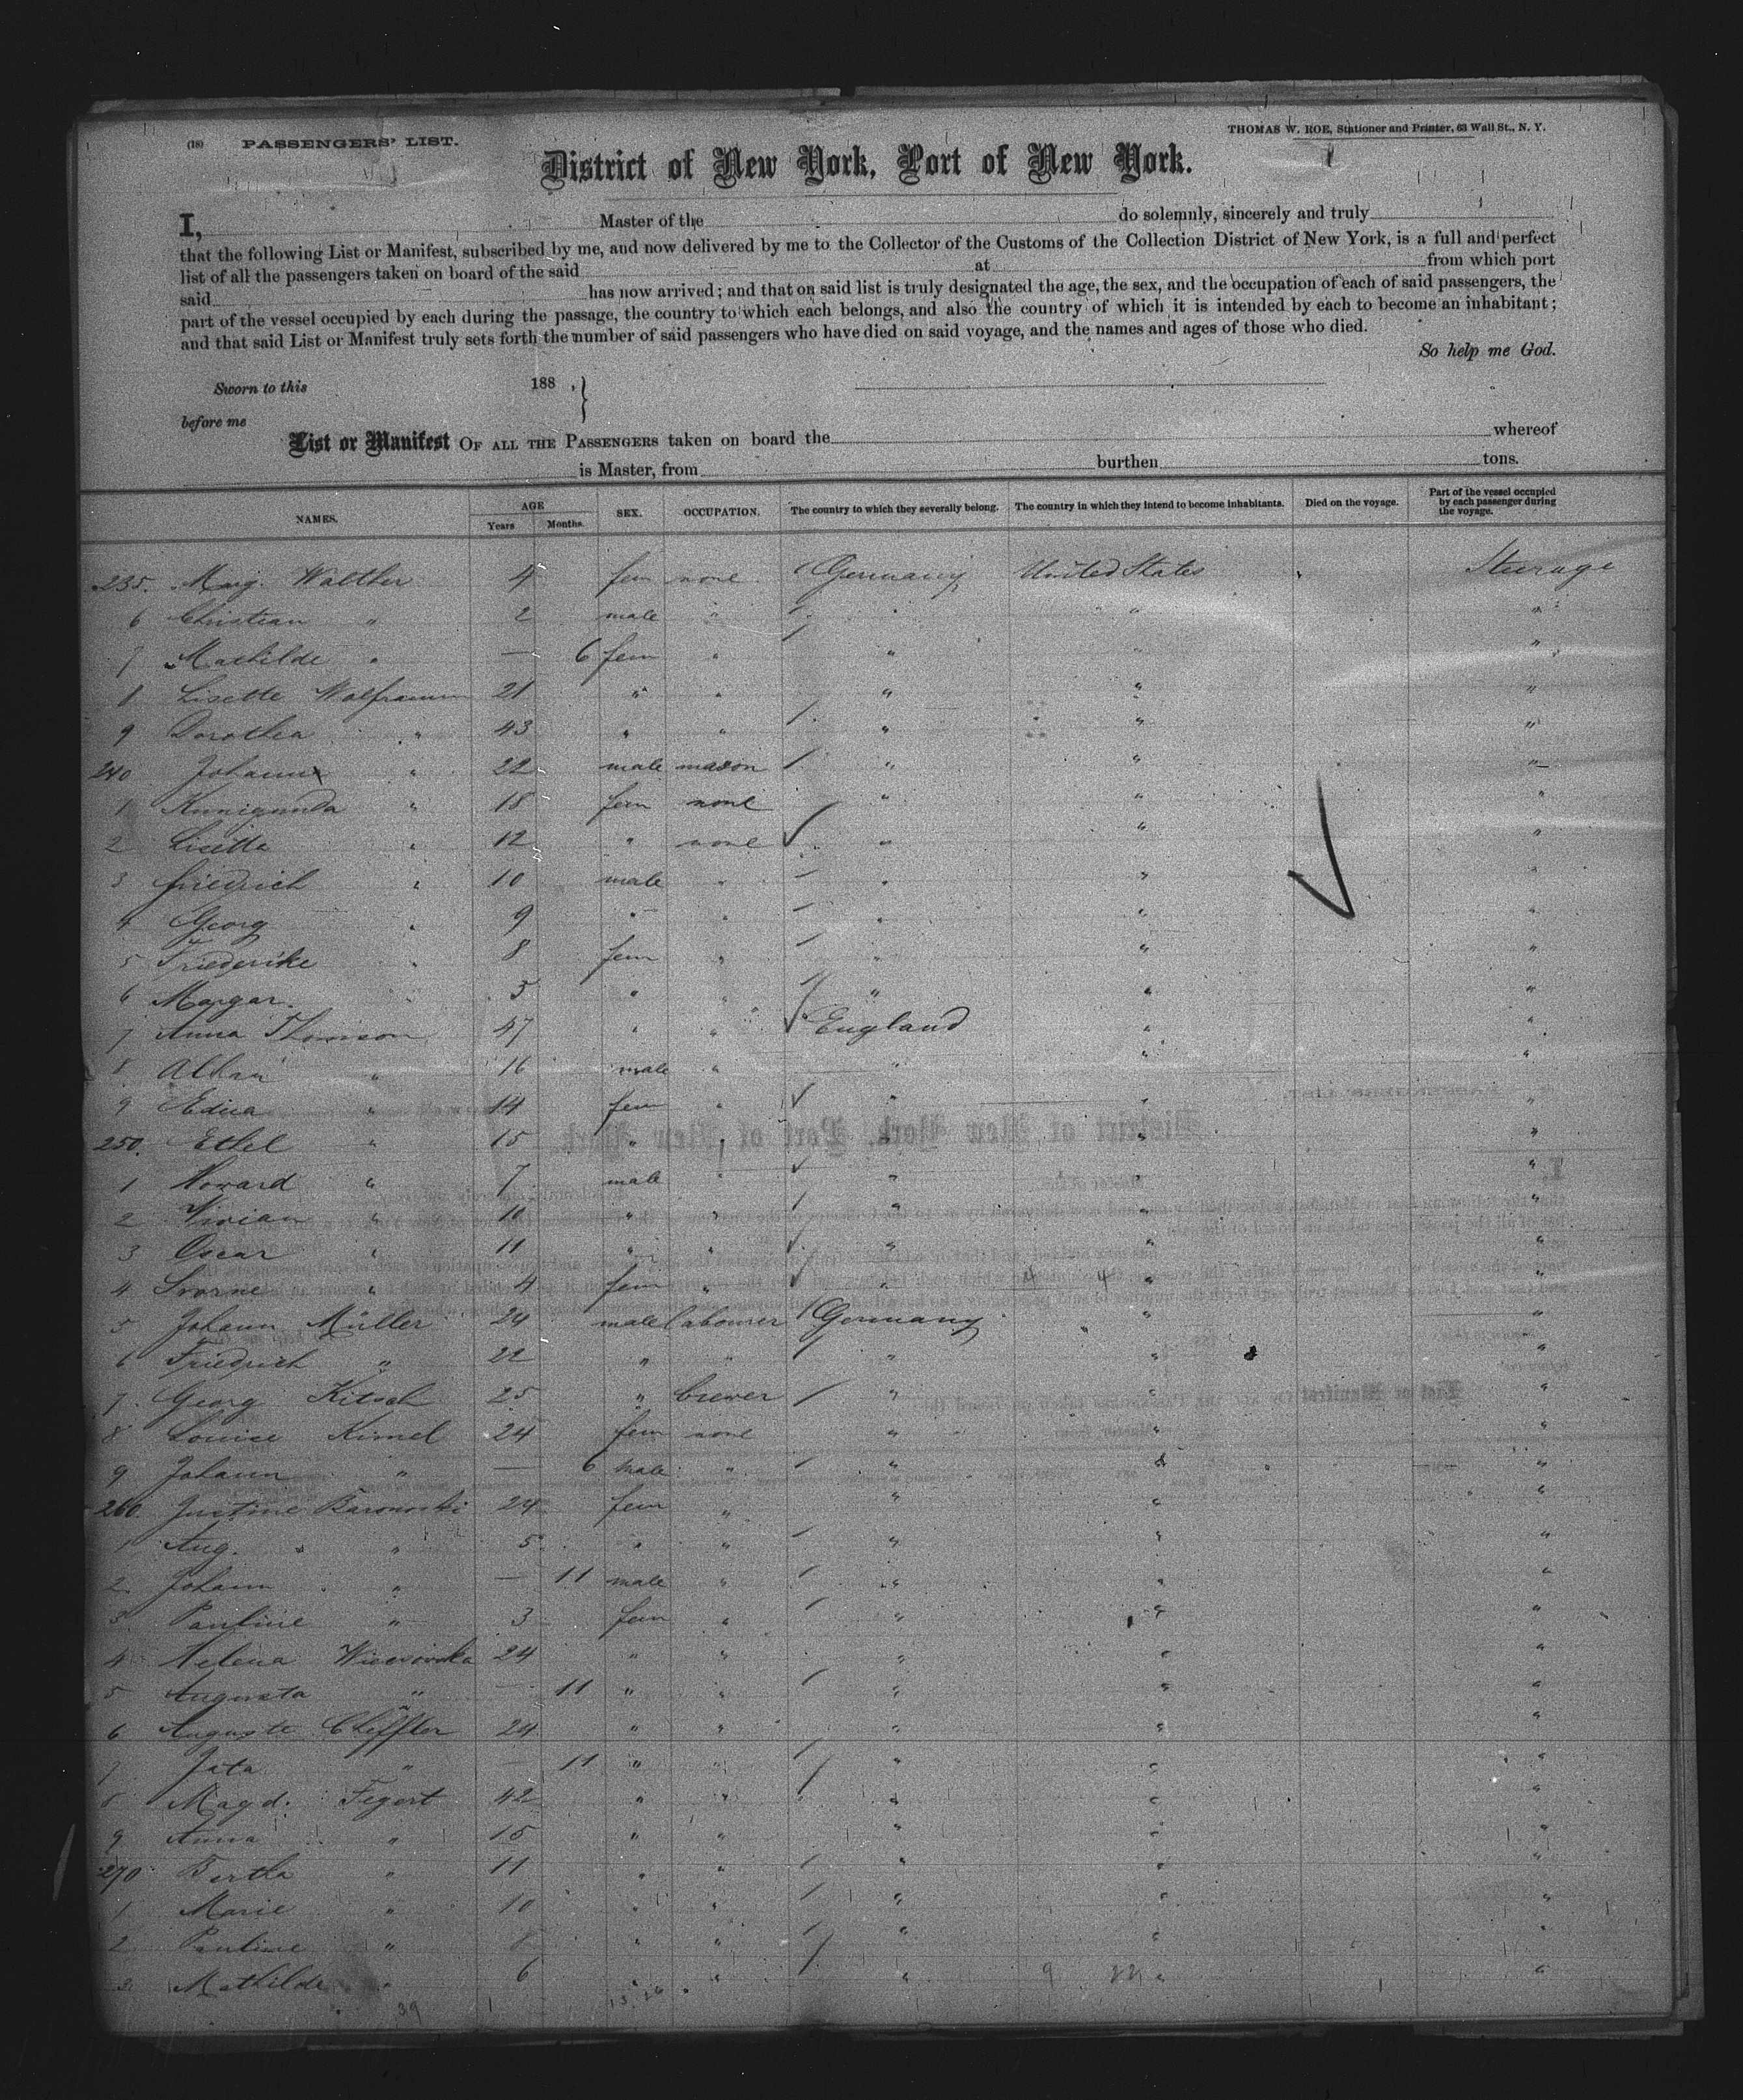 (18) PASSENGERS' LIST.
THOMAS W. ROE, Stationer and Printer, 63 Wall St., N. Y.
District of New York, Port of New York.
I, Master of the do solemnly, sincerely and truly
that the following List or Manifest, subscribed by me, and now delivered by me to the Collector of the Customs of the Collection District of New York, is a full and perfect
list of all the passengers taken on board of the said at from which port
said has now arrived; and that on said list is truly designated the age, the sex, and the occupation of each of said passengers, the
part of the vessel occupied by each during the passage, the country to which each belongs, and also the country of which it is intended by each to become an inhabitant;
and that said List or Manifest truly sets forth the number of said passengers who have died on said voyage, and the names and ages of those who died.
So help me God.
Sworn to this 188 , }
before me
List or Manifest OF ALL THE PASSENGERS taken on board the whereof
is Master, from burthen tons.
NAMES. AGE Years Months. SEX. OCCUPATION. The country to which they severally belong. The country in which they intend to become inhabitants. Died on the voyage. Part of the vessel occupied by each passenger during the voyage.
235. Marg. Walther 4 fem none Germany United States Steerage
6 Christian " 2 male " " " "
7 Mathilde " — 6 fem " " " "
8 Lisette Wolframm 21 " " " " "
9 Dorothea " 43 " " " " "
240 Johann " 22 male mason " " "
1 Kunigunda " 18 fem none " " "
2 Lisetta " 12 " none " " "
3 Friedrich " 10 male " " " "
4 Georg " 9 " " " " "
5 Friederike " 8 fem " " " "
6 Margar. " 5 " " " " "
7 Anna Thomson 47 " " England " "
8 Allan " 16 male " " " "
9 Edna " 14 fem " " " "
250. Ethel " 15 " " " " "
1 Howard " 7 male " " " "
2 Vivian " 10 " " " " "
3 Oscar " 11 " " " " "
4 " 4 fem " " " "
5 Johann Müller 24 male labourer Germany " "
6 Friedrich " 22 " " " " "
7 Georg Kitsch 25 " brewer " " "
8 Louise Kimel 24 fem none " " "
9 Johann " — 6 male " " " "
260. Justine Baronoski 24 fem " " " "
1 Aug. " 5 " " " " "
2 Johann " — 11 male " " " "
3 Pauline " 3 fem " " " "
4 Helena 24 " " " " "
5 Augusta " — 11 " " " " "
6 Auguste Cheffler 24 " " " " "
7 Jata " — 11 " " " " "
8 Magd. Fegert 42 " " " " "
9 Anna " 15 " " " " "
270 Bertha " 11 " " " " "
1 Marie " 10 " " " " "
2 Pauline " 8 " " " " "
3 Mathilde " 6 " " " " "
39